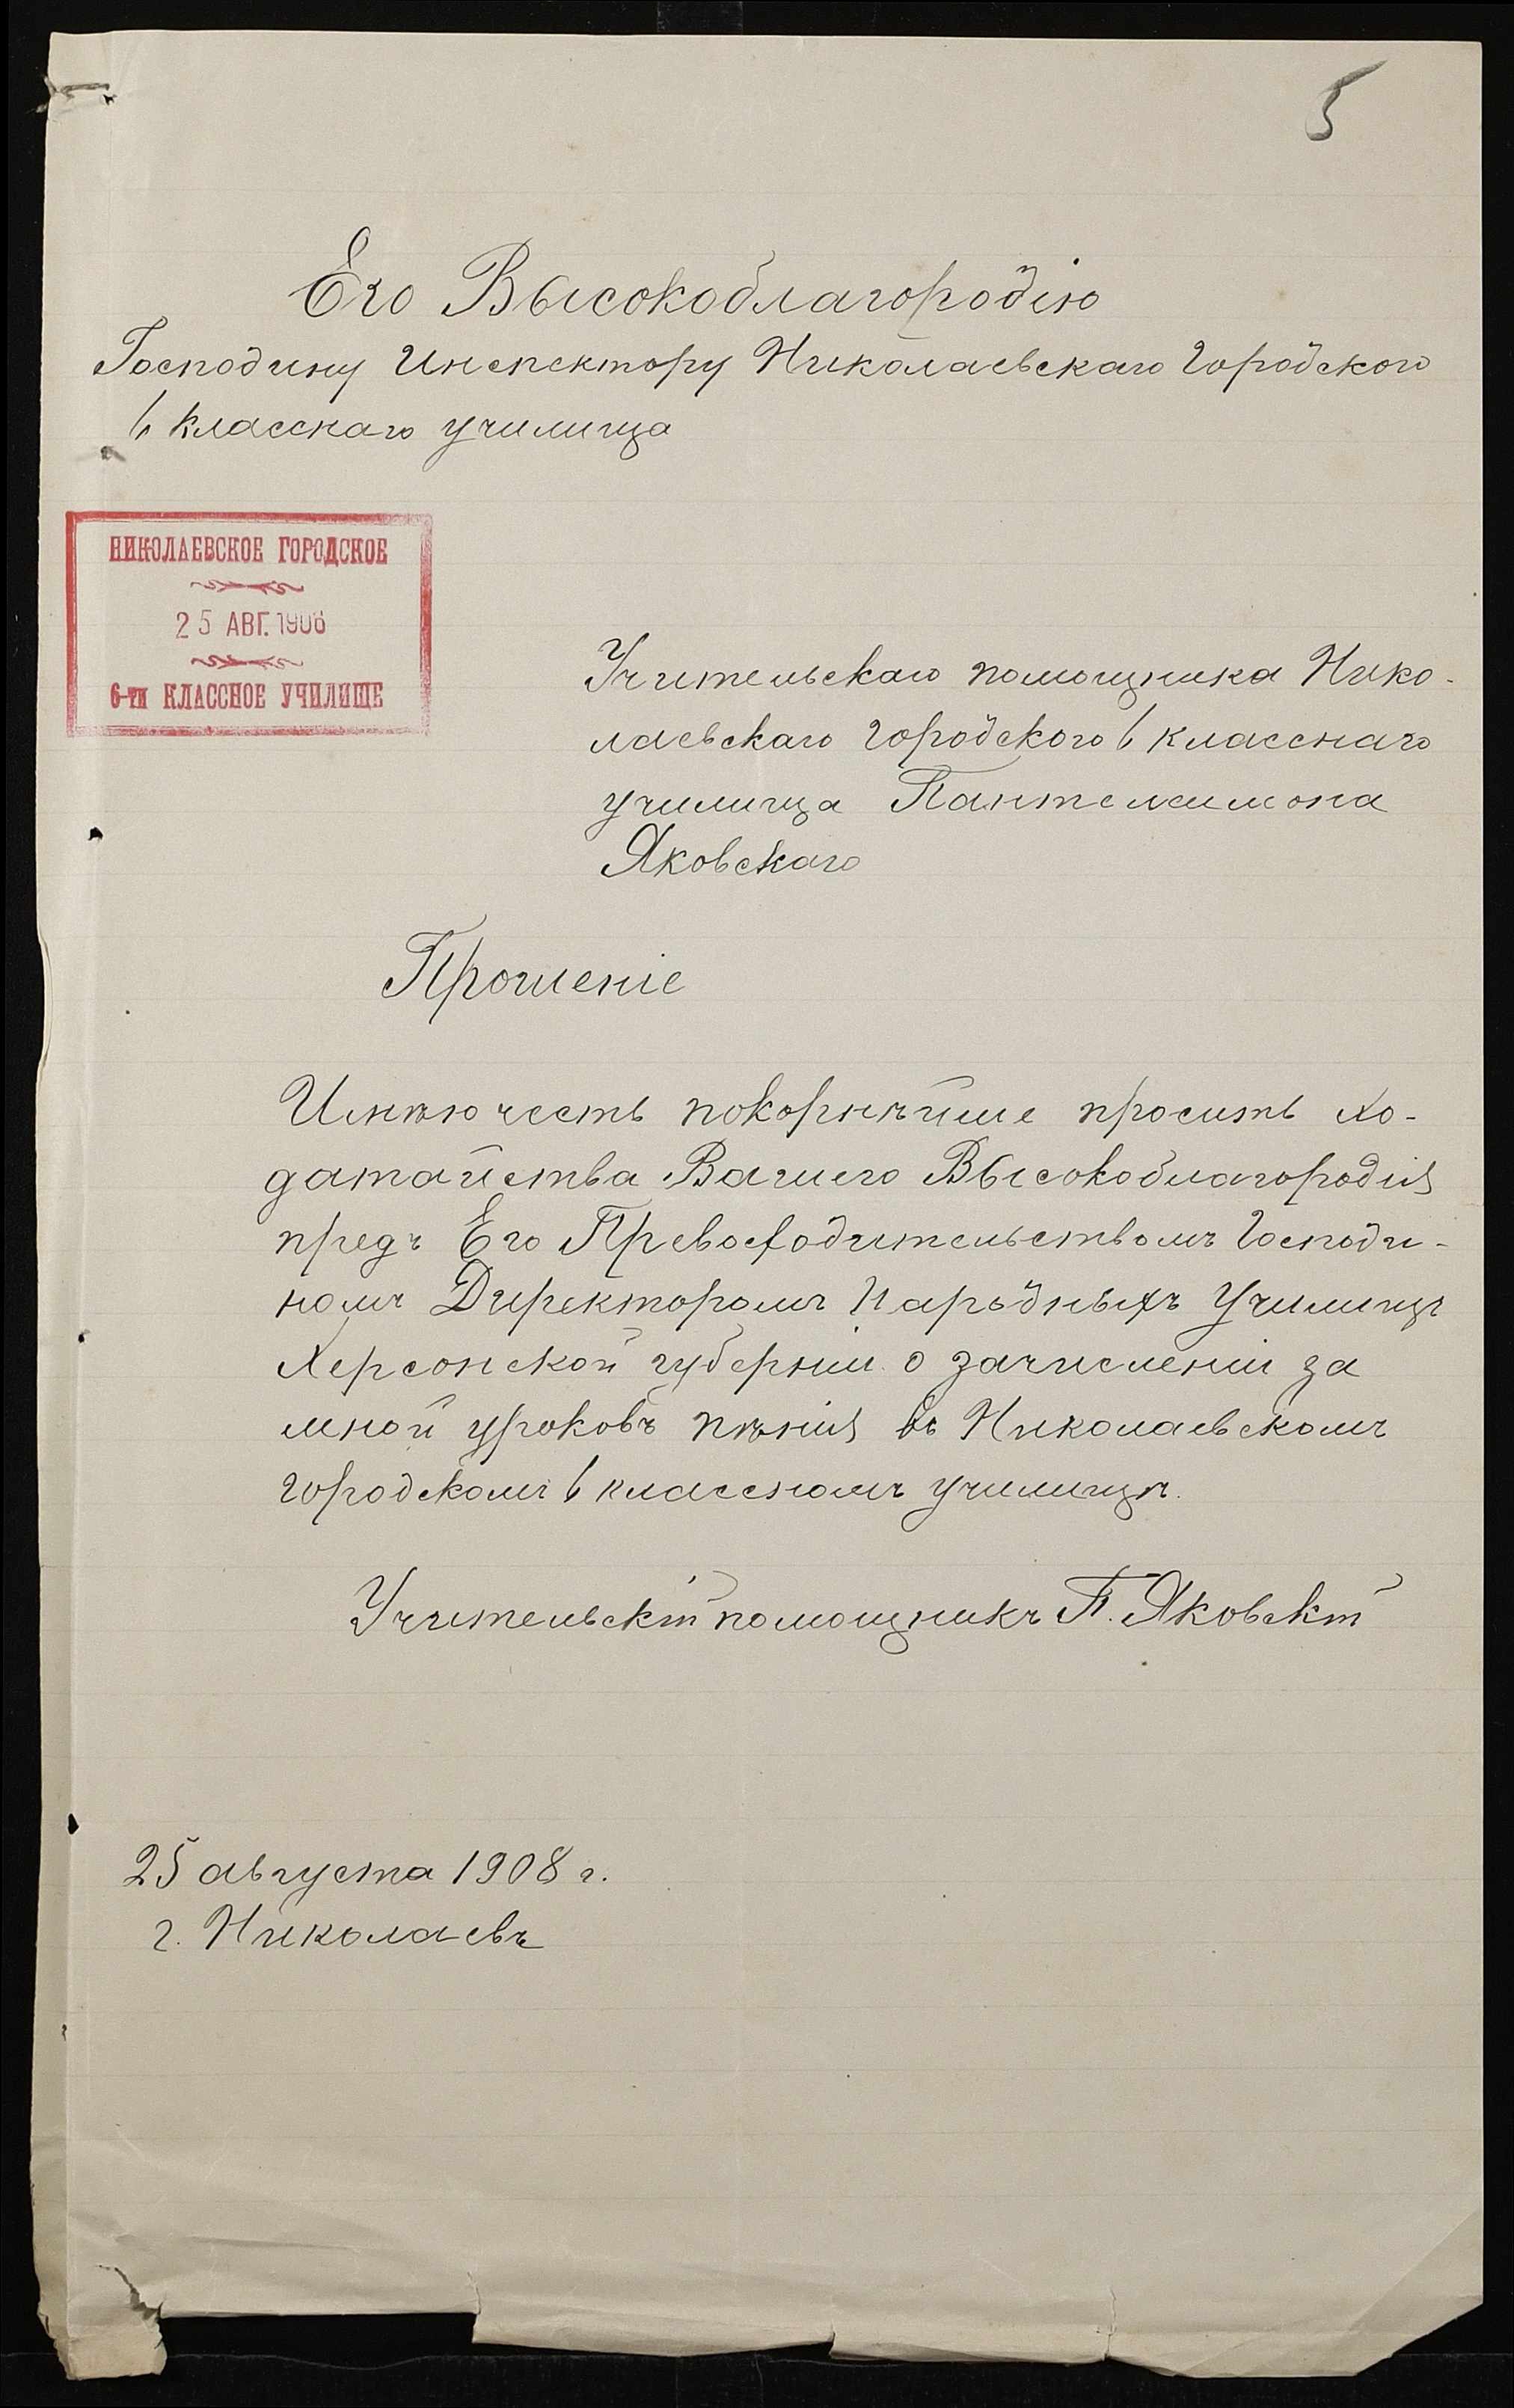 5
Его Высокоблагородію
Господину Инспектору Николаевскаго Городского
6 классного училища
НИКОЛАЕВСКОЕ ГОРОДСКОЕ
25 АВГ. 1908
6-ти КЛАССНОЕ УЧИЛИЩЕ
Учительскаго помощника Нико-
лаевскаго Городского 6 класснаго
училища Пантелеимона
Яковскаго
Прошеніе
Имѣю честь покорнѣйше просить хо-
датайства Вашего Высокоблагородія
предъ Его Превосходительствомъ Господи-
номъ Директоромъ Народныхъ Училищъ
Херсонской губерніи о зачисленіи за
мной уроковъ пѣнія въ Николаевскомъ
Городскомъ 6 классномъ училищѣ.
Учительскій помощникъ П. Яковскій
25 августа 1908 г.
г. Николаевъ